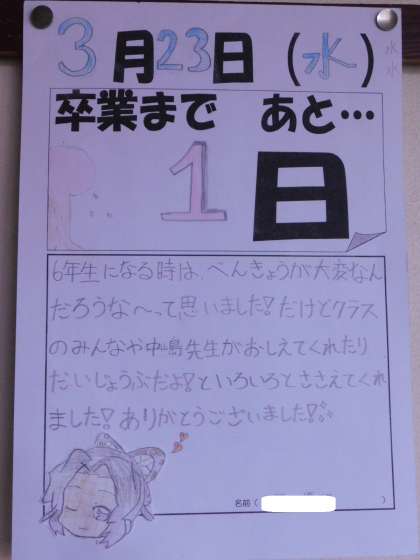 3月23日(水)
水
水
卒業まで あと…
1日
6年生になる時は、べんきょうが大変なん
だろうな～って思いました!だけどクラス
のみんなや中島先生がおしえてくれたり
だいじょうぶだよ!といろいろとささえてくれ
ました!ありがとうございました!
名前( )